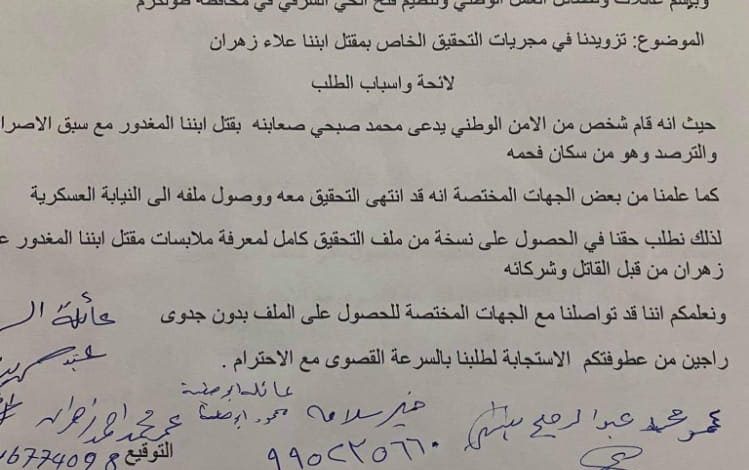 وبإسم عائلات وفصائل العمل الوطني وتنظيم فتح الحي الشرقي في محافظة طولكرم
الموضوع: تزويدنا في مجريات التحقيق الخاص بمقتل ابننا علاء زهران
لائحة واسباب الطلب
حيث انه قام شخص من الامن الوطني يدعى محمد صبحي صعابنه بقتل ابننا المغدور مع سبق الاصرا
والترصد وهو من سكان فحمه
كما علمنا من بعض الجهات المختصة انه قد انتهى التحقيق معه ووصول ملفه الى النيابة العسكرية
لذلك نطلب حقنا في الحصول على نسخة من ملف التحقيق كامل لمعرفة ملابسات مقتل ابننا المغدور ع
زهران من قبل القاتل وشركائه
ونعلمكم اننا قد تواصلنا مع الجهات المختصة للحصول على الملف بدون جدوى
عائلة
راجين من عطوفتكم الاستجابة لطلبنا بالسرعة القصوى مع الاحترام .
عائلة ابو صفية
محمد عبد الرحيم
خير سلامه
محمود ابو صفية
عمر محمد احمد زهران
التوقيع
٩٩٠٢٣٥٦٦٠